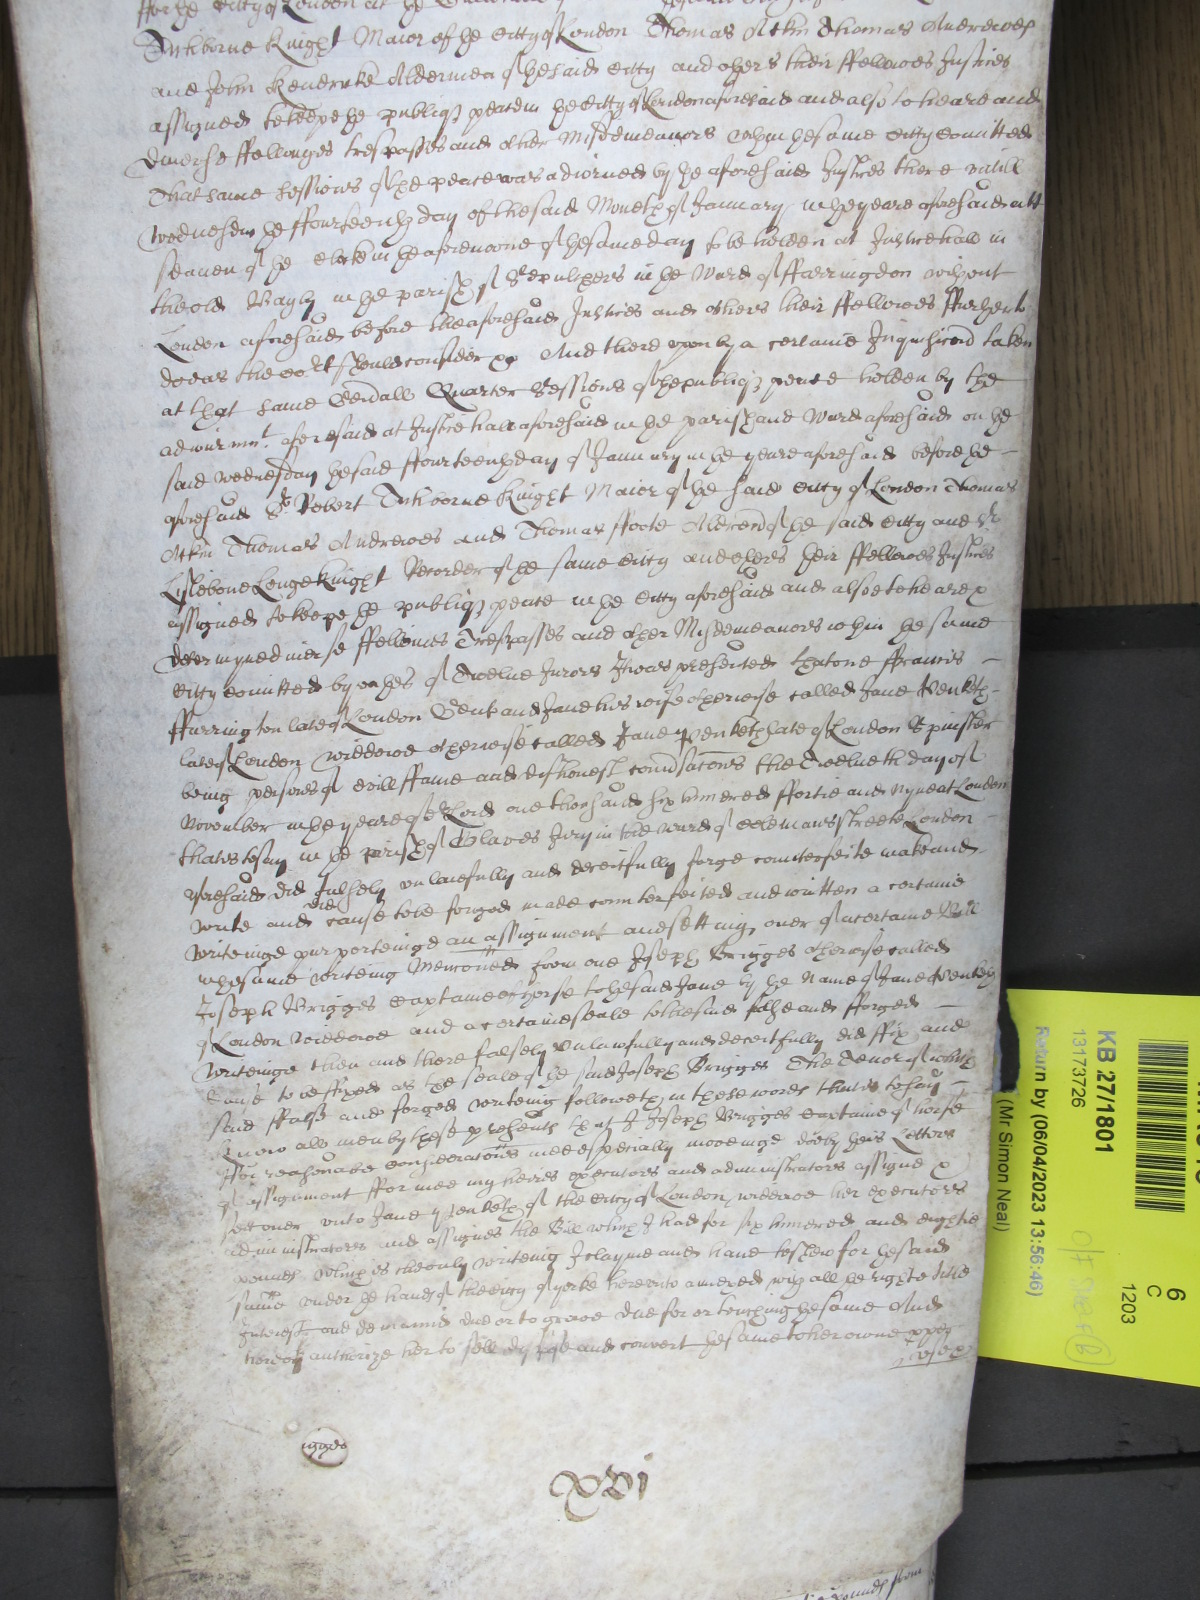 for the Citty of London at the
Tichborne Knight Maior of the Citty of London Thomas Atkin Thomas Andrewes
and John Kendricke Aldermen of the said Citty and others their ffellowes Justices
assigned to keepe the publiq peace in the Citty of London aforesaid and also to heare and
diverse ffellonyes trespasses and other Misdemeanors wthin the same Citty comitted
That same Sessions of the peace was adiorned by the aforesaid Justices there vntill
wednesday the ffourteenth day of the said Moneth of January in the yeare aforesaid att
seaven of the clocke in the aforenoone of the same day to be holden at Justicehall in
the old Bayly in the parish of Sepulchers in the Ward of ffarringdon without
London aforesaid before the aforesaid Justices and others their ffellowes ffurther to
doe as the Cort should consider &c And there vpon by a certaine Inquisicon taken
at that same Generall Quarter Sessions of the publiq peace holden by the
adiurnmt aforesaid at Justice hall aforesaid in the parish and Ward aforesaid on the
said wednesday the said ffourteenth day of January in the yeare aforesaid before the
aforesaid Sr Robert Tichborne Knight Maior of the said Citty of London Thomas
Atkin Thomas Andrewes and Thomas ffoote Aldermen of the said Citty and Sr
Lislebone Longe Knight Recorder of the same Citty and others their ffellowes Justices
assigned to keepe the publiq peace in the Citty aforesaid and also to heare &
determyne diverse ffellonies Trespasses and other Misdemeanors wthin the same
Citty comitted by oathes of Twelve Jurors It was presented that one ffrancis
ffarrington late of London Gent and Jane his wife otherwise called Jane Penketh
late of London widdowe otherwise called Jane Penketh late of London Spinster
being persons of evill ffame and dishonest conversacons the Twelueth day of
November in the yeare of or Lord one thousand six hundred ffortie and Nyne at London
that is to say in the parish of Olaves Jury in the ward of Colemanstreete London
aforesaid did falsely vnlawfully and deceitfully forge counterfeite make and
write and did cause to be forged made counterfeited and written a certaine
writeinge purporteinge an assignment and setting over of a certaine Bill
in the same writeing Menconed from one Joseph Brigges otherwise called
Joseph Brigges Captaine of horse to the said Jane by the Name of Jane Penketh
of London Widdowe and a certaine seale to the said false and fforged
writeinge then and there falsely vnlawfully and deceitfully did ffix and
cause to be ffixed as the seale of the said Joseph Brigges The Tenor of which
said ffalse and forged writeing followeth in these words that is to say
Know all men by these presents that I Joseph Brigges Captaine of horse
ffor reasonable consideracons mee especially moveinge doe by theis Letters
of assignment ffor mee my heires executors and administrators assigne &
sett over vnto Jane Penketh of the Citty of London widdowe her executors
administrators and assignes the Bill which I had for six hundred and eightie
pounds which is the only writeing I clayme and have to shew for the said
same vnder the hands of the Citty of yorke herevnto annexed with all the right title
Interest and demaund due or to growe due for or touching the same And
hereby authorize her to sell dispose and convert the same to her owne pper
vse &
igges
xvi
KB 27/1801
13173726
Return by (06/04/2023 13:56:46)
(Mr Simon Neal)
6
C
1203